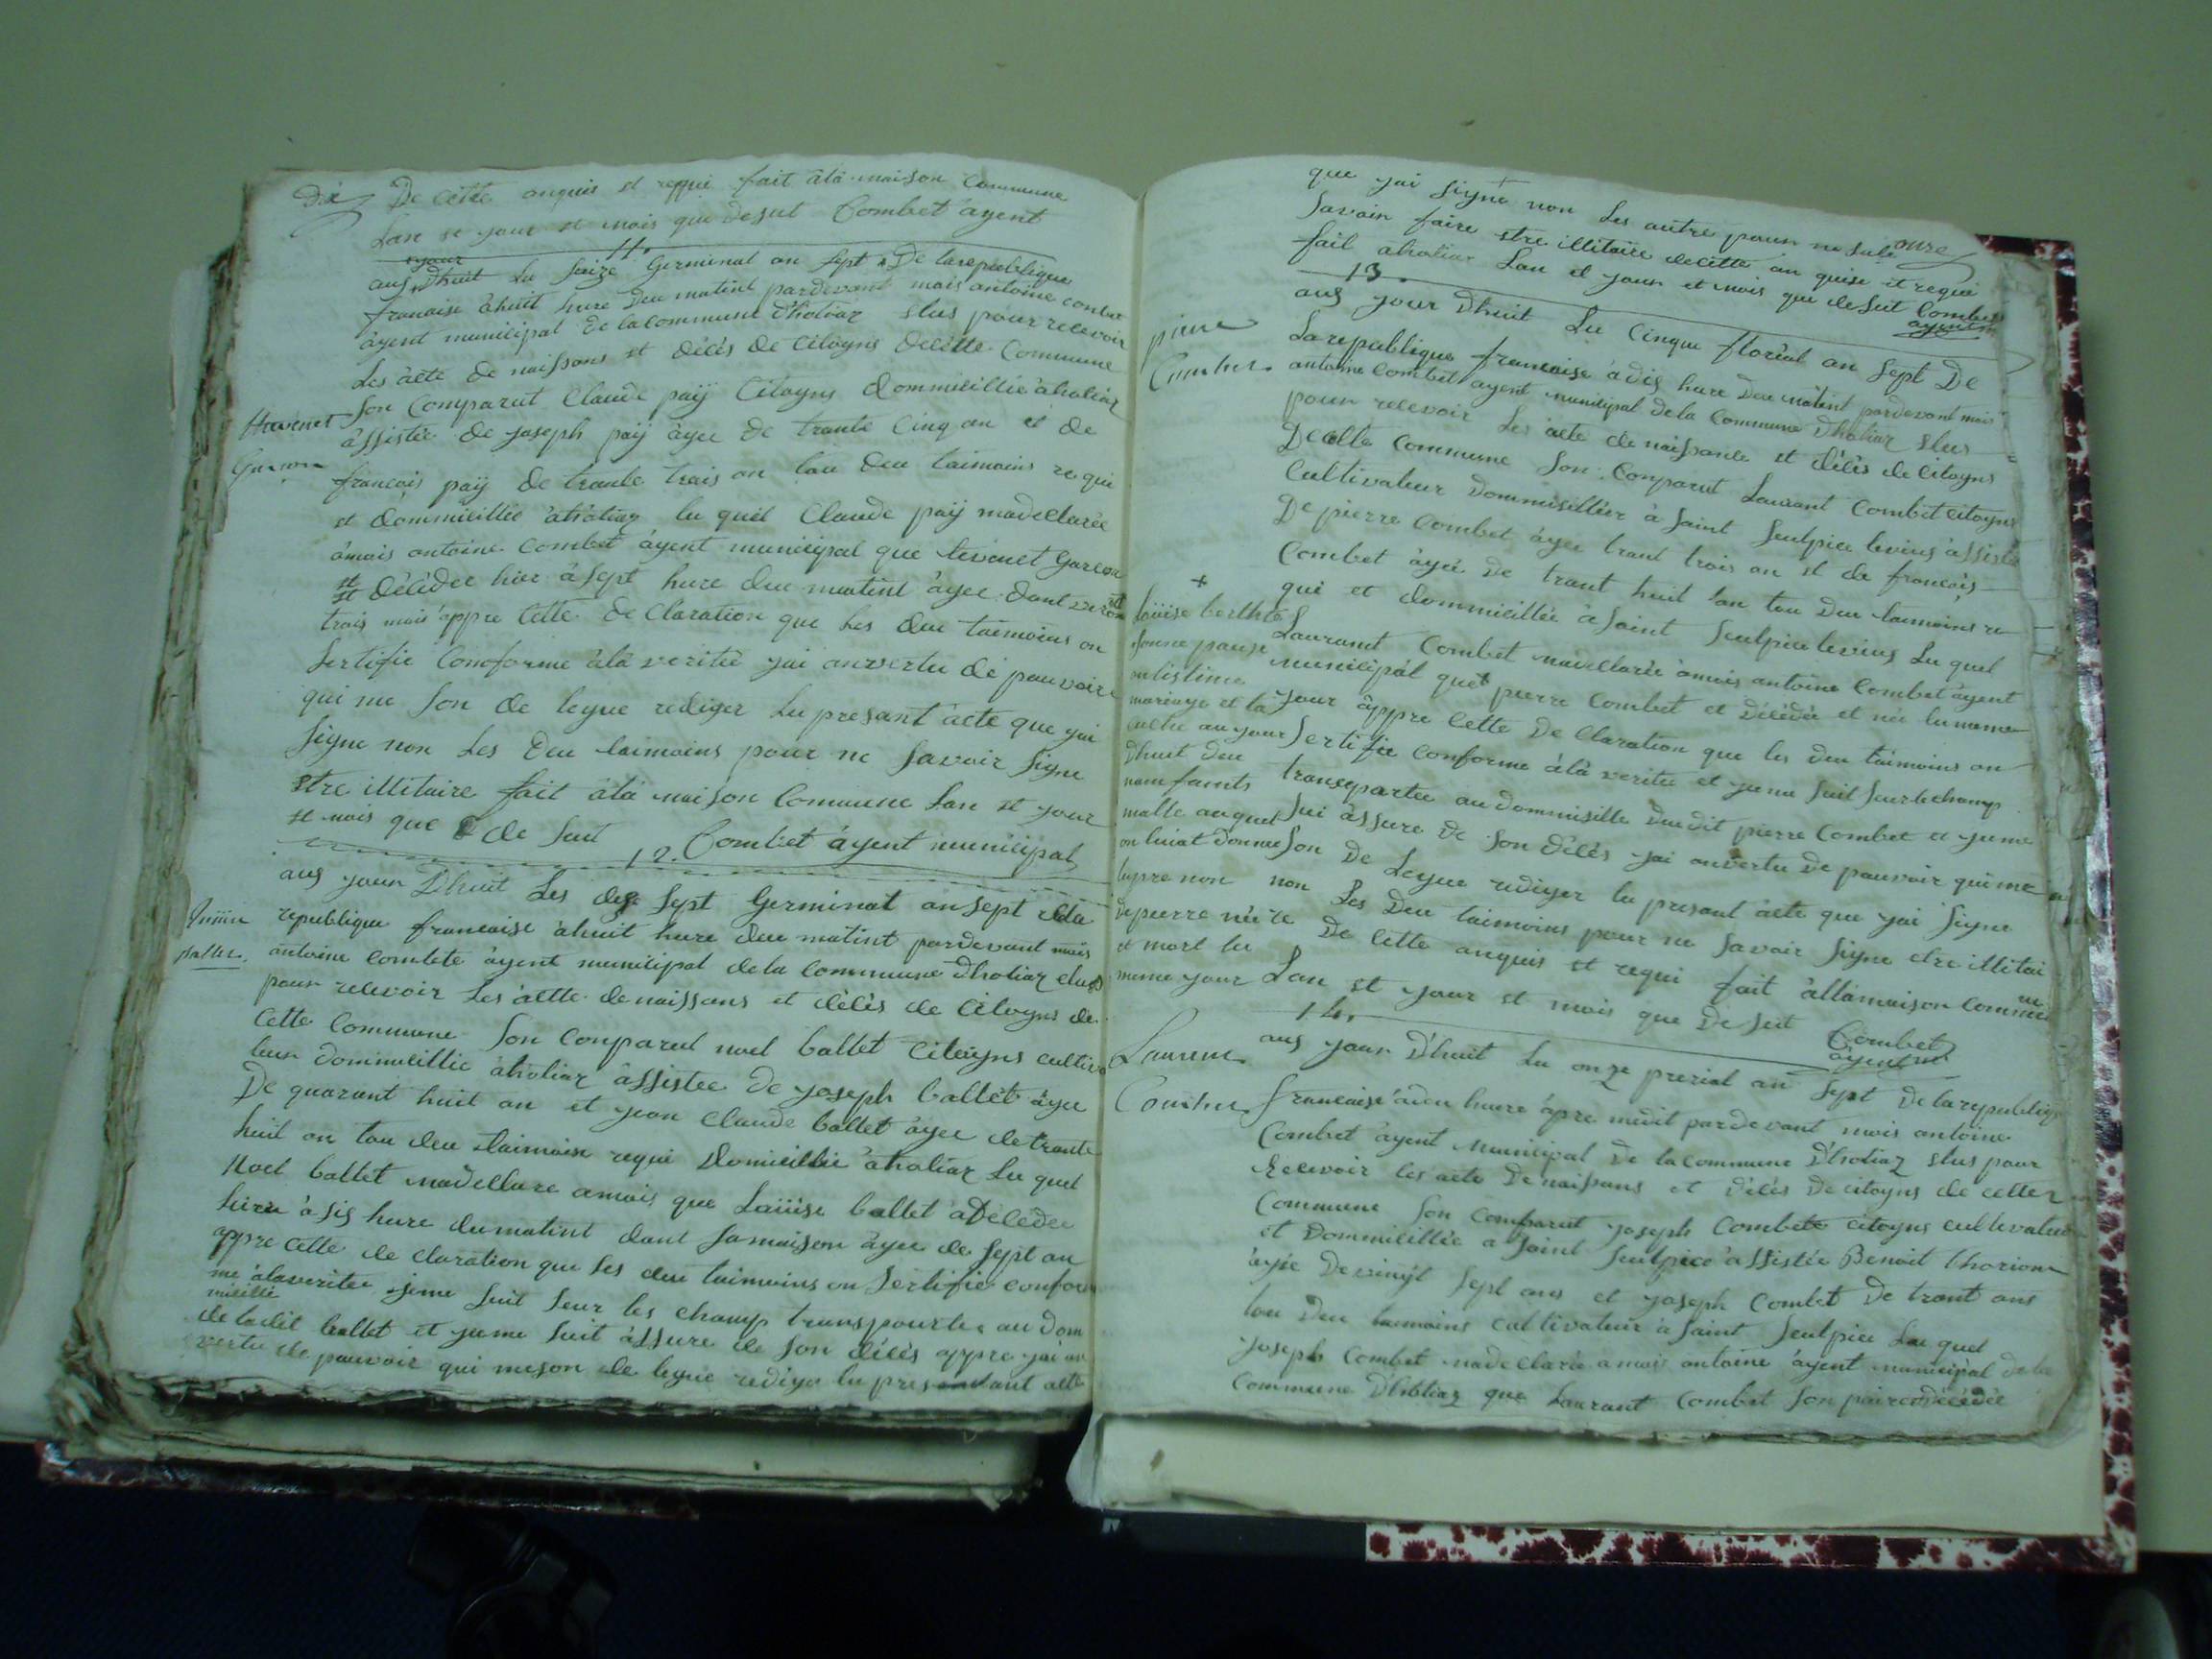 dix
De cette anquis et requi fait àtà maison Commune
Lan et jour et mois que desut Combet ayent
11.
auj jour Dhuit Lu seize Germinal an sept De larepublique
francaise àhuit hure Deu matint pardevant mois antoine combet
àyent municipal de lacommune Dhotiaz elus pour recevoir
Les àcte de naissans et décés de Citoyns decette Commune
son Comparut Claude paÿ Citoyns dommicillié àhotiaz
àssistée de joseph paÿ àyée De trante Cinq an et de
francois paÿ de trante trais an tou deu taimoins requi
et dommicillie àhotiaz lu quel Claude paÿ madeclarée
àmois antoine Combet àyent municipal que Garcon
et décédée hier à sept hure deu matint àyee dant
trois mois appre Cette declaration que Les deu taimoins on
sertifie Conoforme àlà veritée jai anvertu dé pauvoire
qui me son de legue rediger Lu presant àcte que jai
signe non Les Deu taimoins pour ne savoir signe
etre illitaire fait àtà maison Commune Lan et jour
et mois que de sut Combet àyent municipal
12.
auj jour Dhuit Les dex sept Germinal an sept dela
republique francaise àhuit hure deu matint pardevant mois
antoine combete àyent municipal dela Commune Dhotiaz elus
pour recevoir Les àctte denaissans et décés de Citoyns de
Cette Commune son Conparut noel ballet Citoyns cultiva
teur dommicillie àhotiaz àssistee De joseph ballet àyee
De quarant huit an et jean Claude ballet àyee detrante
huit an tou deu taimoise requi Domicillie àhotiaz Lu quel
Noel ballet madeclare amois que Laiüise ballet à Décédée
hiere à sis hure dumatint dant samaison àyee de sept an
appre cette de claration que Les deu taimoins on sertifie confor
me àlaveritée jeme suit seur les champ transpourtee au dom
micille
de ladit ballet et jeme suit àssure de son décés appre jai an
vertu de pauvoir qui meson de legue rediger lu presantant acte
onze
que jai signe non Les autre pour ne
savoir faire etre illitaire decette an quise et requi
fait ahotiaz Lan et jour et mois que desut Combet
ayent m
13.
pierre
Combet
auj jour Dhuit Lu Cinque floréal an sept De
Larepublique francaise à dis hure Deu matint pardevant mois
antoine Combet ayent municipal dela Commune Dhotiaz elus
pour recevoir Les àcte de naissance et décés de Citoyns
Decette Commune son Conparut Laurant Combet citoyns
Cultivateur Dommisillier à saint seulpice àssistée
De pierre Combet àyee trant trois an et de francois
Combet àyeé de trant huit an tou deu taimoins re
qui et dommicillée à saint seulpice Lu quel
Laurant Combet madeclarée àmois antoine Combet àyent
municipàl que pierre Combet et décédée et née lumame
jour àppre Cette De Claration que les deu taimoins on
sertifie conforme àlà veritee et jeme suit seurlechamp
transpartee audommisille Deudit pierre Combet et jeme
sui àssure de son décés jai anvertu De pauvoir quime
son De Legue rediger lu presant àcte que jai signe
non Les Deu taimoins pour ne savoir signe etre illitai
re De Cette anquis et requi fait àllàmaison commu
ne
Lan et jour et mois que De sut Combet
ayent m
+
Laüise berthet
mariage et la
culte au jour
Dhuit deu
nom famts
malle auquel
on luiat Donnee
lupre non
depierre née
et mort lu
meme jour
14.
Laurent
Combet
auj jour D'huit Lu onze prerial an sept Delarepublique
francaise àdeu hure àpre medit pardevant mois antoine
Combet ayent municipal De lacommune D'hotiaz elus pour
Recevoir les acte Denaissans et décés De citoyns de cette
Commune son Comparut joseph Combete citoyns cultevateur
et Dommicillée a saint seulpice àssistée Benoit
àyée Devinyt sept ans et joseph Combet De trant ans
tou Deu taimoins cultivateur à saint seulpice Lu quel
joseph Combet madeclarée amois antoine àyent municipal dela
Commune D'hotiaz que Laurant Combet son paire décédée